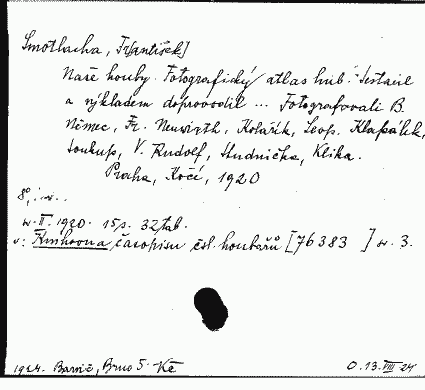 Smotlacha, Fr[antišek]
Naše houby. Fotografický atlas hub. Sestavil
a výkladem doprovodil ... Fotografovali B.
Němec, Fr. Neuwirth, Kolařík, Leop. Klapálek,
Soukup, V. Rudolf, Studnička, Klika.
Praha, Kočí, 1920
8°,
w. II. 1920. 15 s. 32 tab.
v: Knihovna časopisu čsl. houbařů [76383 ] w. 3.
1924. Barvič, Brno 5. Kč
O. 13. VIII 24